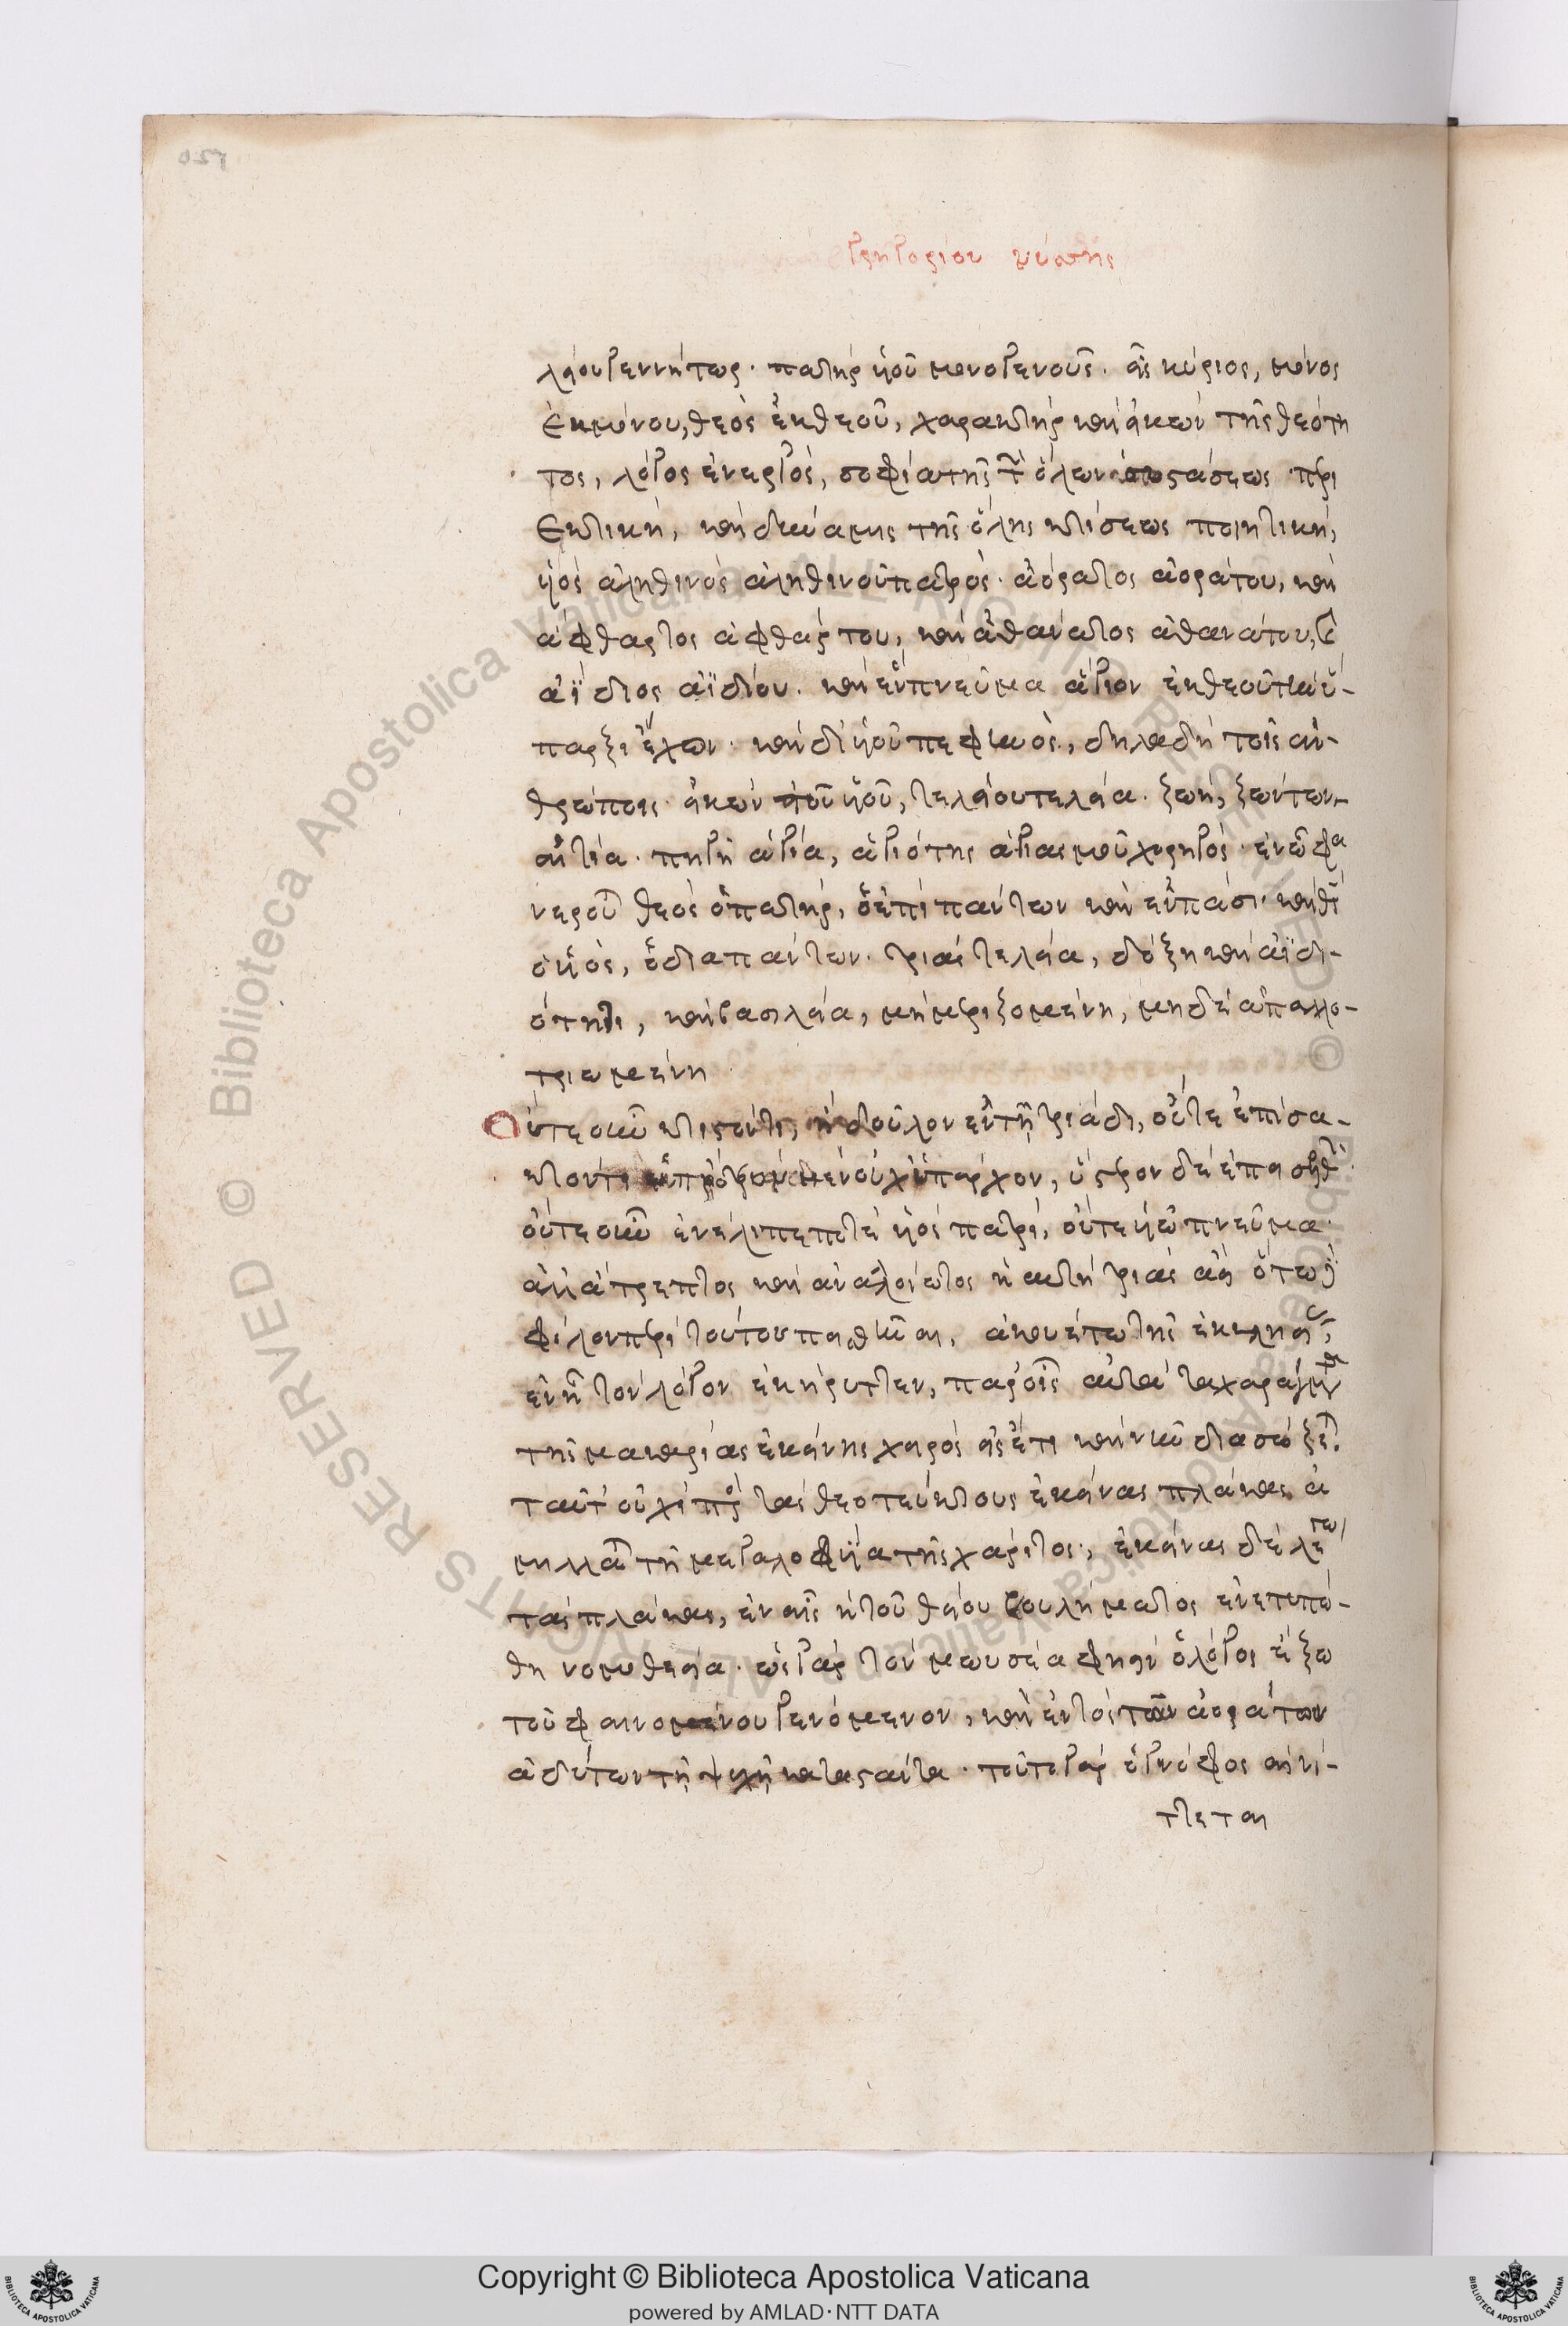 γρηγορίου νύσης
λείου γεννήτωρ· πατὴρ υἱοῦ μονογενοῦς· εἷς κύριος, μόνος
ἐκ μόνου, θεὸς ἐκ θεοῦ, χαρακτὴρ καὶ εἰκὼν τῆς θεότη
τος, λόγος ἐνεργός, σοφία τῆς τῶν ὅλων συστάσεως περι
εκτικὴ, καὶ δύναμις τῆς ὅλης κτίσεως ποιητικὴ,
υἱὸς ἀληθινὸς ἀληθινοῦ πατρὸς· ἀόρατος ἀοράτου, καὶ
ἄφθαρτος ἀφθάρτου, καὶ ἀθάνατος ἀθανάτου, καὶ
ἀΐδιος ἀϊδίου· καὶ ἓν πνεῦμα ἅγιον ἐκ θεοῦ τὴν ὕ-
παρξιν ἔχον· καὶ δι' υἱοῦ πεφηνὸς, δηλαδὴ τοῖς ἀν-
θρώποις· εἰκὼν τοῦ υἱοῦ, τελείου τελεία· ζωὴ, ζώντων
αἰτία· πηγὴ ἁγία, ἁγιότης ἁγιασμοῦ χορηγός· ἐν ᾧ φα
νεροῦται θεὸς ὁ πατὴρ, ὁ ἐπὶ πάντων καὶ ἐν πᾶσι· καὶ θεὸς
ὁ υἱὸς, ὁ διὰ πάντων· τριὰς τελεία, δόξῃ καὶ ἀϊδι-
ότητι, καὶ βασιλείᾳ, μὴ μεριζομένη, μηδὲ ἀπαλλο-
τριουμένη
Οὔτε οὖν κτιστόν τι, ἢ δοῦλον ἐν τῇ τριάδι, οὔτε ἐπείσα-
κτόν τι πρότερον μὲν οὐχ ὑπάρχον, ὕστερον δὲ ἐπεισελθόν·
οὔτε οὖν ἐνέλιπέ ποτε υἱὸς πατρί, οὔτε υἱῷ πνεῦμα·
ἀλλ' ἄτρεπτος καὶ ἀναλλοίωτος ἡ αὐτὴ τριὰς ἀεὶ ὅτῳ δὲ
φίλον περὶ τούτου πεισθῆναι, ἀκουέτω τῆς ἐκκλησίας,
ἐν ᾗ τὸν λόγον ἐκήρυττεν, παρ' οἷς αὐτὰ τὰ χαράγματα
τῆς μακαρίας ἐκείνης χειρὸς εἰς ἔτι καὶ νῦν διασώζεται.
ταῦτ' οὐχὶ πρὸς τὰς θεοτεύκτους ἐκείνας πλάκας ἁ
μιλλᾶται τῇ μεγαλοφυΐα τῆς χάριτος, ἐκείνας δὲ λέγω
τὰς πλάκας, ἐν αἷς ἡ τοῦ θείου βουλήματος ἐνετυπώ-
θη νομοθεσία· ὡς γὰρ τὸν μωυσέα φησὶν ὁ λόγος ἔξω
τοῦ φαινομένου γενόμενον, καὶ ἐντὸς τῶν ἀοράτων
ἀδύτων τῇ ψυχῇ καταστάντα· τοῦτο γὰρ ὁ γνόφος αἰνί-
ττεται